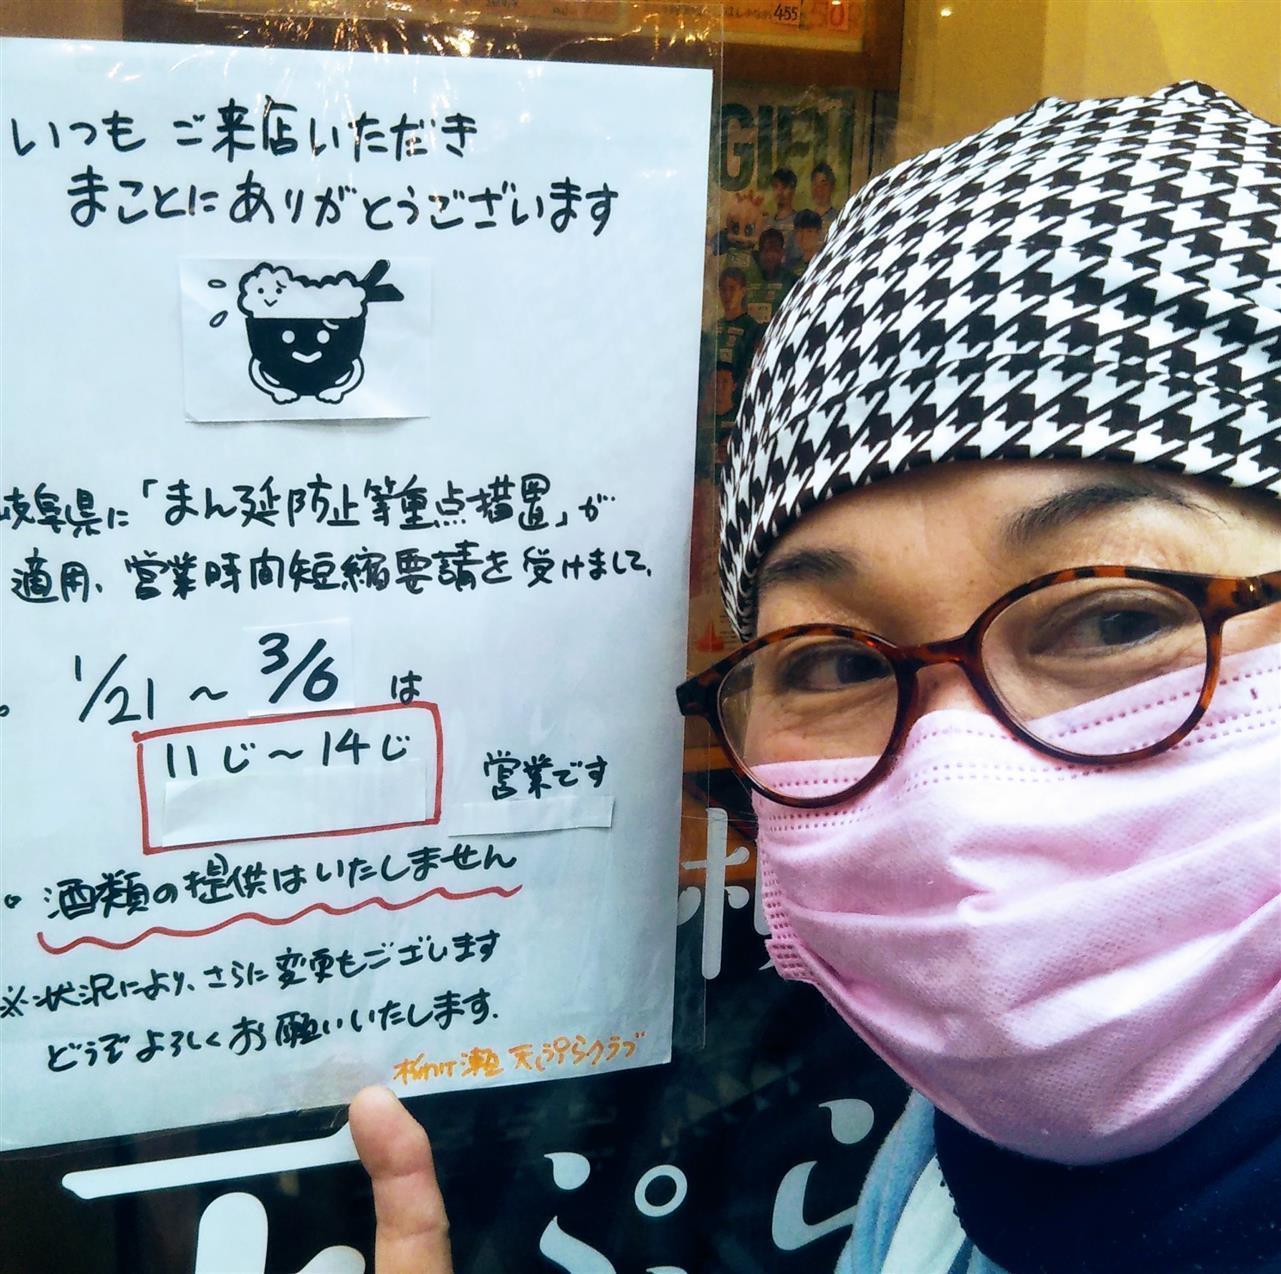 455
GIFU
いつも ご来店いただき
まことにありがとうございます
岐阜県に「まん延防止等重点措置」が
適用、営業時間短縮要請を受けまして、
。1/21 ～ 3/6 は
11じ～14じ
営業です
。酒類の提供はいたしません
※状況により、さらに変更もございます
どうぞよろしくお願いいたします.
柳ケ瀬 天ぷらクラブ
天ぷら